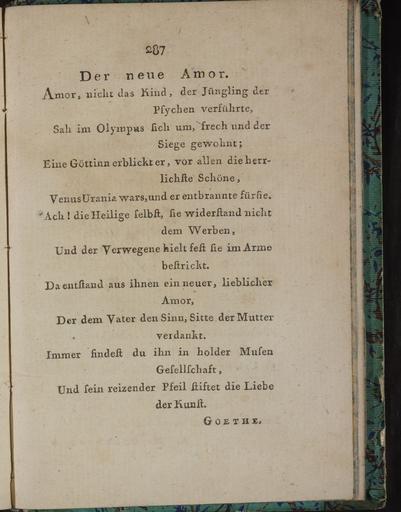 287
Der neue Amor.
Amor, nicht das Kind, der Jüngling der
Pſychen verführte,
Sah im Olympus ſich um, frech und der
Siege gewohnt;
Eine Göttinn erblickt er, vor allen die herr-
lichſte Schöne,
Venus Urania wars, und er entbrannte für ſie.
Ach! die Heilige ſelbſt, ſie widerſtand nicht
dem Werben,
Und der Verwegene hielt feſt ſie im Arme
beſtrickt.
Da entſtand aus ihnen ein neuer, lieblicher
Amor,
Der dem Vater den Sinn, Sitte der Mutter
verdankt.
Immer findeſt du ihn in holder Muſen
Geſellſchaft,
Und ſein reizender Pfeil ſtiftet die Liebe
der Kunſt.
GOETHE.